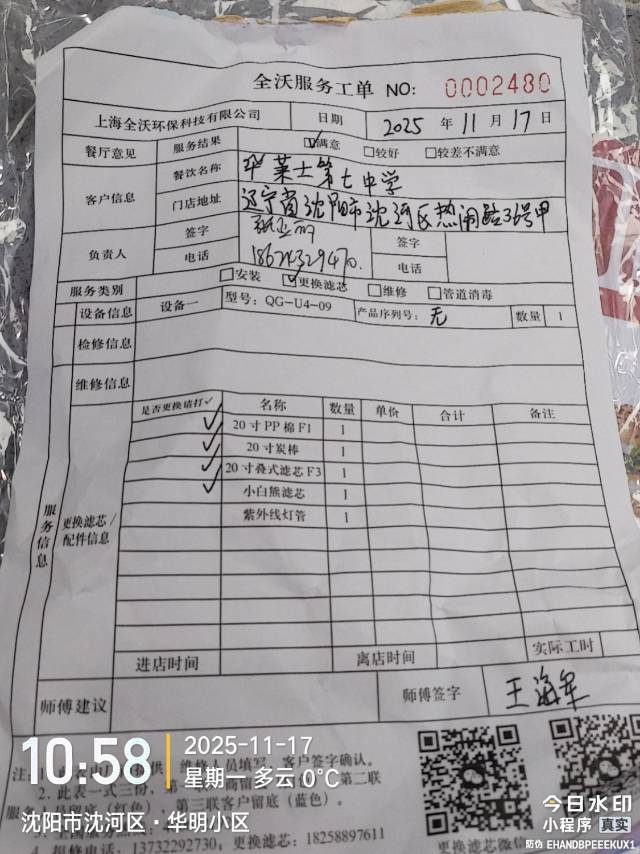 全沃服务工单 NO: 0002480
上海全沃环保科技有限公司 日期 2025 年 11 月 17 日
餐厅意见 服务结果 ☑满意 □较好 □较差不满意
客户信息 餐饮名称 华莱士第七中学
门店地址 辽宁省沈阳市沈河区热闹路36号甲
负责人 签字 签字
电话 18624329470. 电话
服务类别 □安装 ☑更换滤芯 □维修 □管道消毒
设备信息 设备一 型号: QG-U4-09 产品序列号: 无 数量 1
检修信息
维修信息
服务信息
更换滤芯/配件信息
是否更换请打✓ 名称 数量 单价 合计 备注
✓ 20寸PP棉F1 1
✓ 20寸炭棒 1
✓ 20寸叠式滤芯F3 1
✓ 小白熊滤芯 1
紫外线灯管 1
进店时间 离店时间 实际工时
师傅建议 师傅签字 王海军
10:58
2025-11-17
星期一 多云 0°C
沈阳市沈河区·华明小区
维修人员填写,客户签字确认。
2. 此表一式三份,第一联 商留底 第二联
服务人员留底(红色),第三联客户留底(蓝色)。
4. 报修电话: 13732292730; 更换滤芯: 18258897611
更换滤芯微信
今日水印
小程序 真实
防伪 EHANDBPEEEKUX1